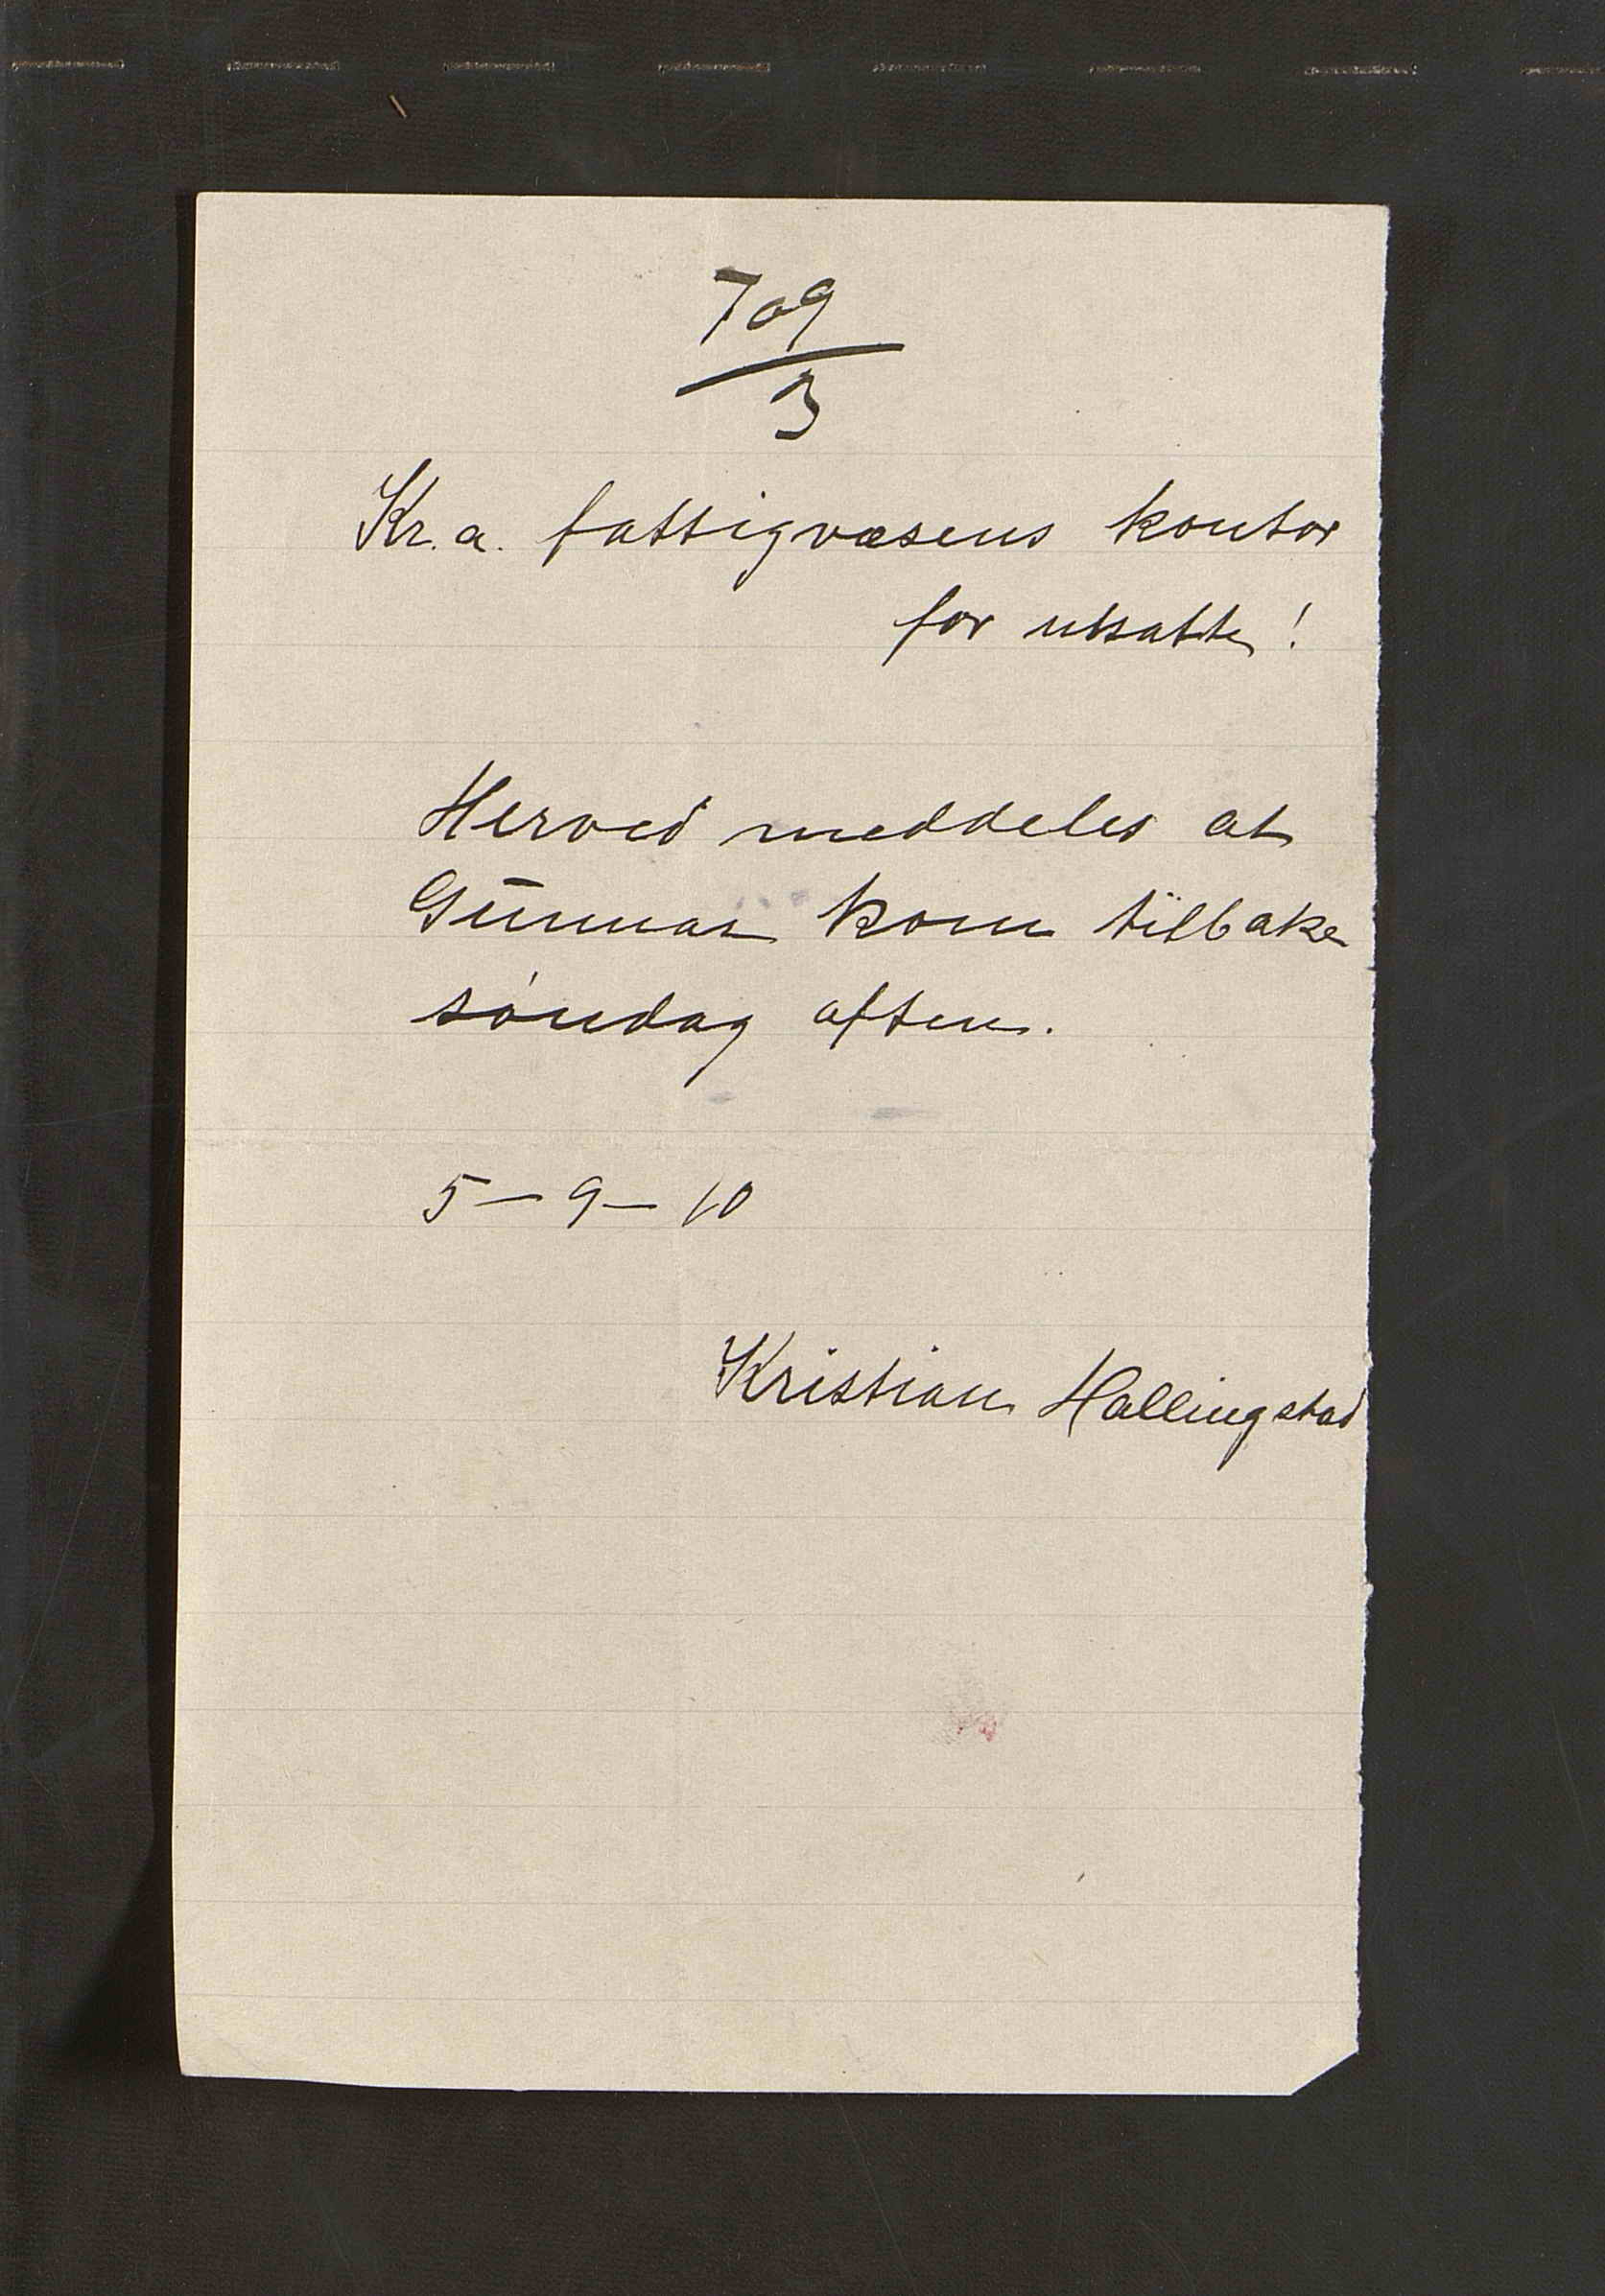 709
3
Kr.a. fattigvæsens kontor
for utsatte!
Herved meddeles at
Gunnar kom tilbake
søndag aften.
5-9-10
Kristian Hallingstad